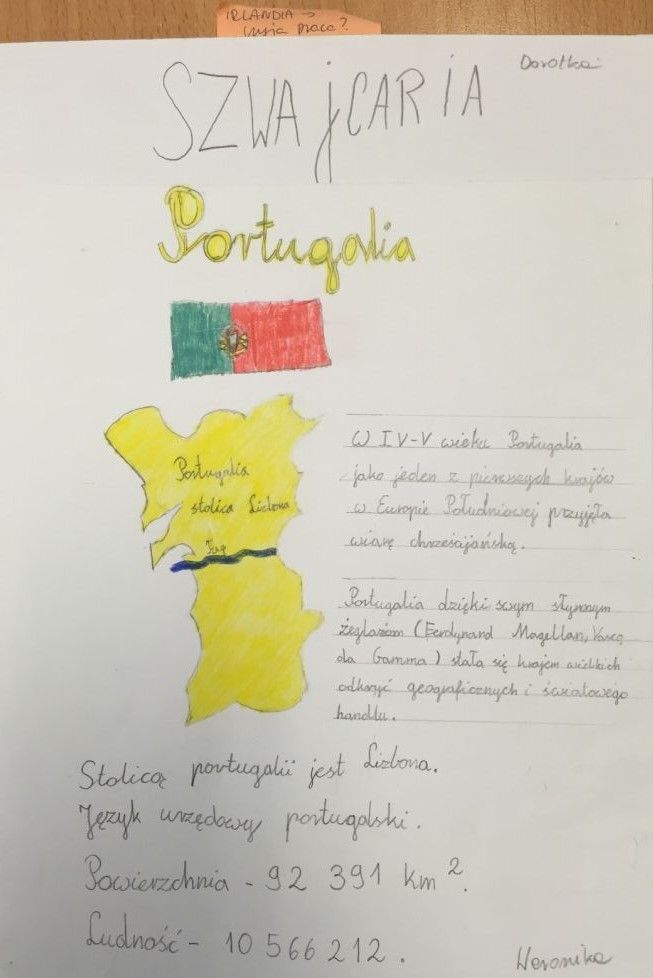 IRLANDIA →
czyja praca?
Dorotka
SZWAjCARiA
Portugalia
Portugalia
stolica Lizbona
Tag
W IV-V wieku Portugalia
jako jeden z pierwszych krajów
w Europie Południowej przyjęła
wiarę chrześcijańską.
Portugalia dzięki swym słynnym
żeglarzom (Ferdynand Magellan, Vasco
da Gamma) stała się krajem wielkich
odkryć geograficznych i światowego
handlu.
Stolicą portugalii jest Lizbona.
Język urzędowy portugalski.
Powierzchnia - 92 391 km².
Ludność - 10 566 212.
Weronika